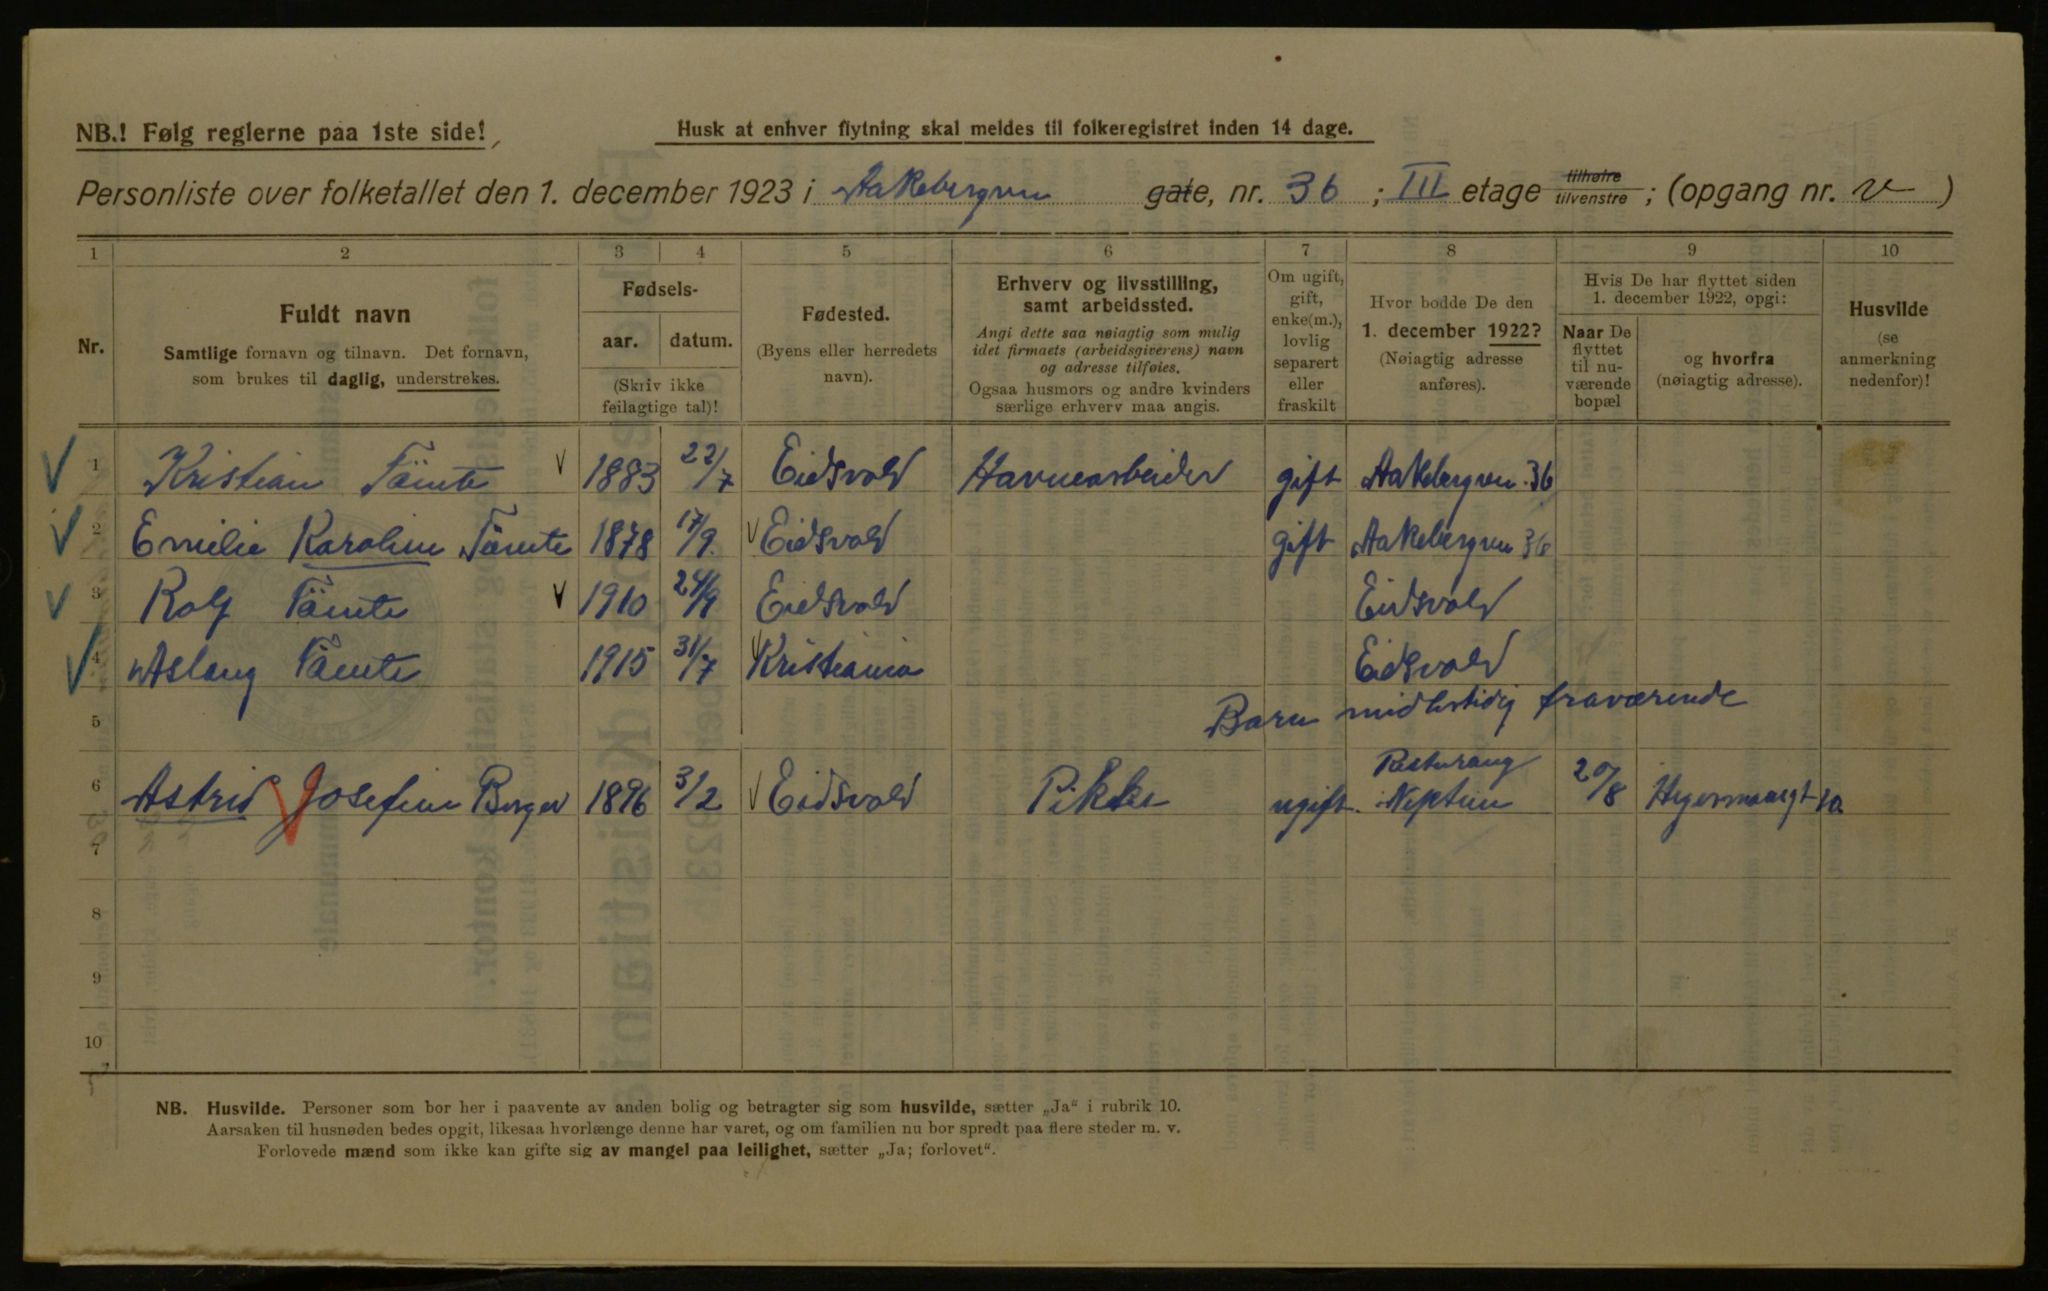 NB.! Følg reglerne paa 1ste side!
Husk at enhver flytning skal meldes til folkeregistret inden 14 dage.
Personliste over folketallet den 1. december 1923 i Aakebergven gate, nr. 36 ; III etage tilhøire tilvenstre ; (opgang nr. v )
1 2 3 4 5 6 7 8 9 10
Nr.
Fuldt navn
Samtlige fornavn og tilnavn. Det fornavn,
som brukes til daglig, understrekes.
Fødsels-
aar. datum.
(Skriv ikke
feilagtige tal)!
Fødested.
(Byens eller herredets
navn).
Erhverv og livsstilling,
samt arbeidssted.
Angi dette saa nøiagtig som mulig
idet firmaets (arbeidsgiverens) navn
og adresse tilføies.
Ogsaa husmors og andre kvinders
særlige erhverv maa angis.
Om ugift,
gift,
enke(m.),
lovlig
separert
eller
fraskilt
Hvor bodde De den
1. december 1922?
(Nøiagtig adresse
anføres).
Hvis De har flyttet siden
1. december 1922, opgi:
Naar De
flyttet
til nu-
værende
bopæl
og hvorfra
(nøiagtig adresse).
Husvilde
(se
anmerkning
nedenfor)!
1 Kristian Tömte 1883 22/7 Eidsvold Havnearbeider gift Aakebergven 36
2 Emilie Karoline Tömte 1878 17/9. Eidsvold gift Aakebergven 36
3 Rolf Tömte 1910 24/9 Eidsvold Eidsvold
4 Aslaug Tömte 1915 31/7 Kristiania Eidsvold
5 Barn midlertidig fraværende
6 Astrid Josefine Berger 1896 3/2 Eidsvold Pikke ugift. Resturang Neptun 20/8 Hegermansgt 10
7
8
9
10
NB. Husvilde. Personer som bor her i paavente av anden bolig og betragter sig som husvilde, sætter „Ja“ i rubrik 10.
Aarsaken til husnøden bedes opgit, likesaa hvorlænge denne har varet, og om familien nu bor spredt paa flere steder m. v.
Forlovede mænd som ikke kan gifte sig av mangel paa leilighet, sætter „Ja; forlovet“.